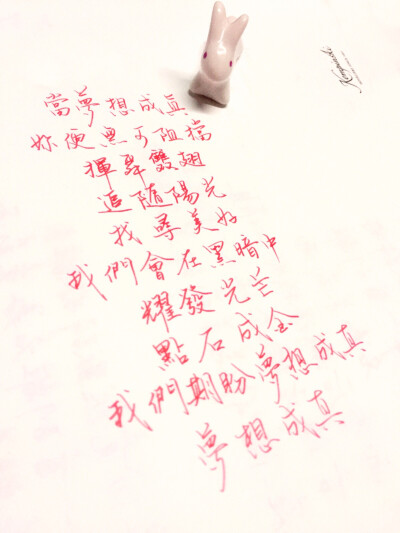 當夢想成真
妳便無可阻擋
揮舞雙翅
追隨陽光
找尋美好
我們會在黑暗中
耀發光芒
點石成金
我們期盼夢想成真
夢想成真